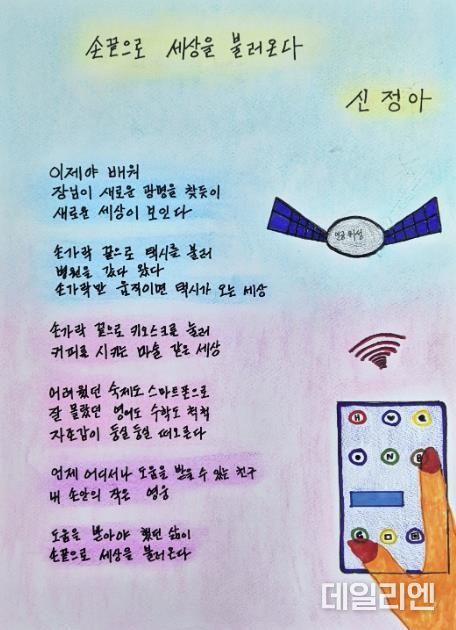 손끝으로 세상을 불러온다
신정아
이제야 배워
장님이 새로운 광명을 찾듯이
새로운 세상이 보인다
손가락 끝으로 택시를 불러
병원을 갔다 왔다
손가락만 움직이면 택시가 오는 세상
손가락 끝으로 키오스크를 눌러
커피를 시키는 마술 같은 세상
어려웠던 숙제도 스마트폰으로
잘 몰랐던 영어도 수학도 척척
자존감이 둥실둥실 떠오른다
언제 어디서나 도움을 받을 수 있는 친구
내 손안의 작은 영웅
도움을 받아야 했던 삶이
손끝으로 세상을 불러온다
인공위성
H
N
데일리엔